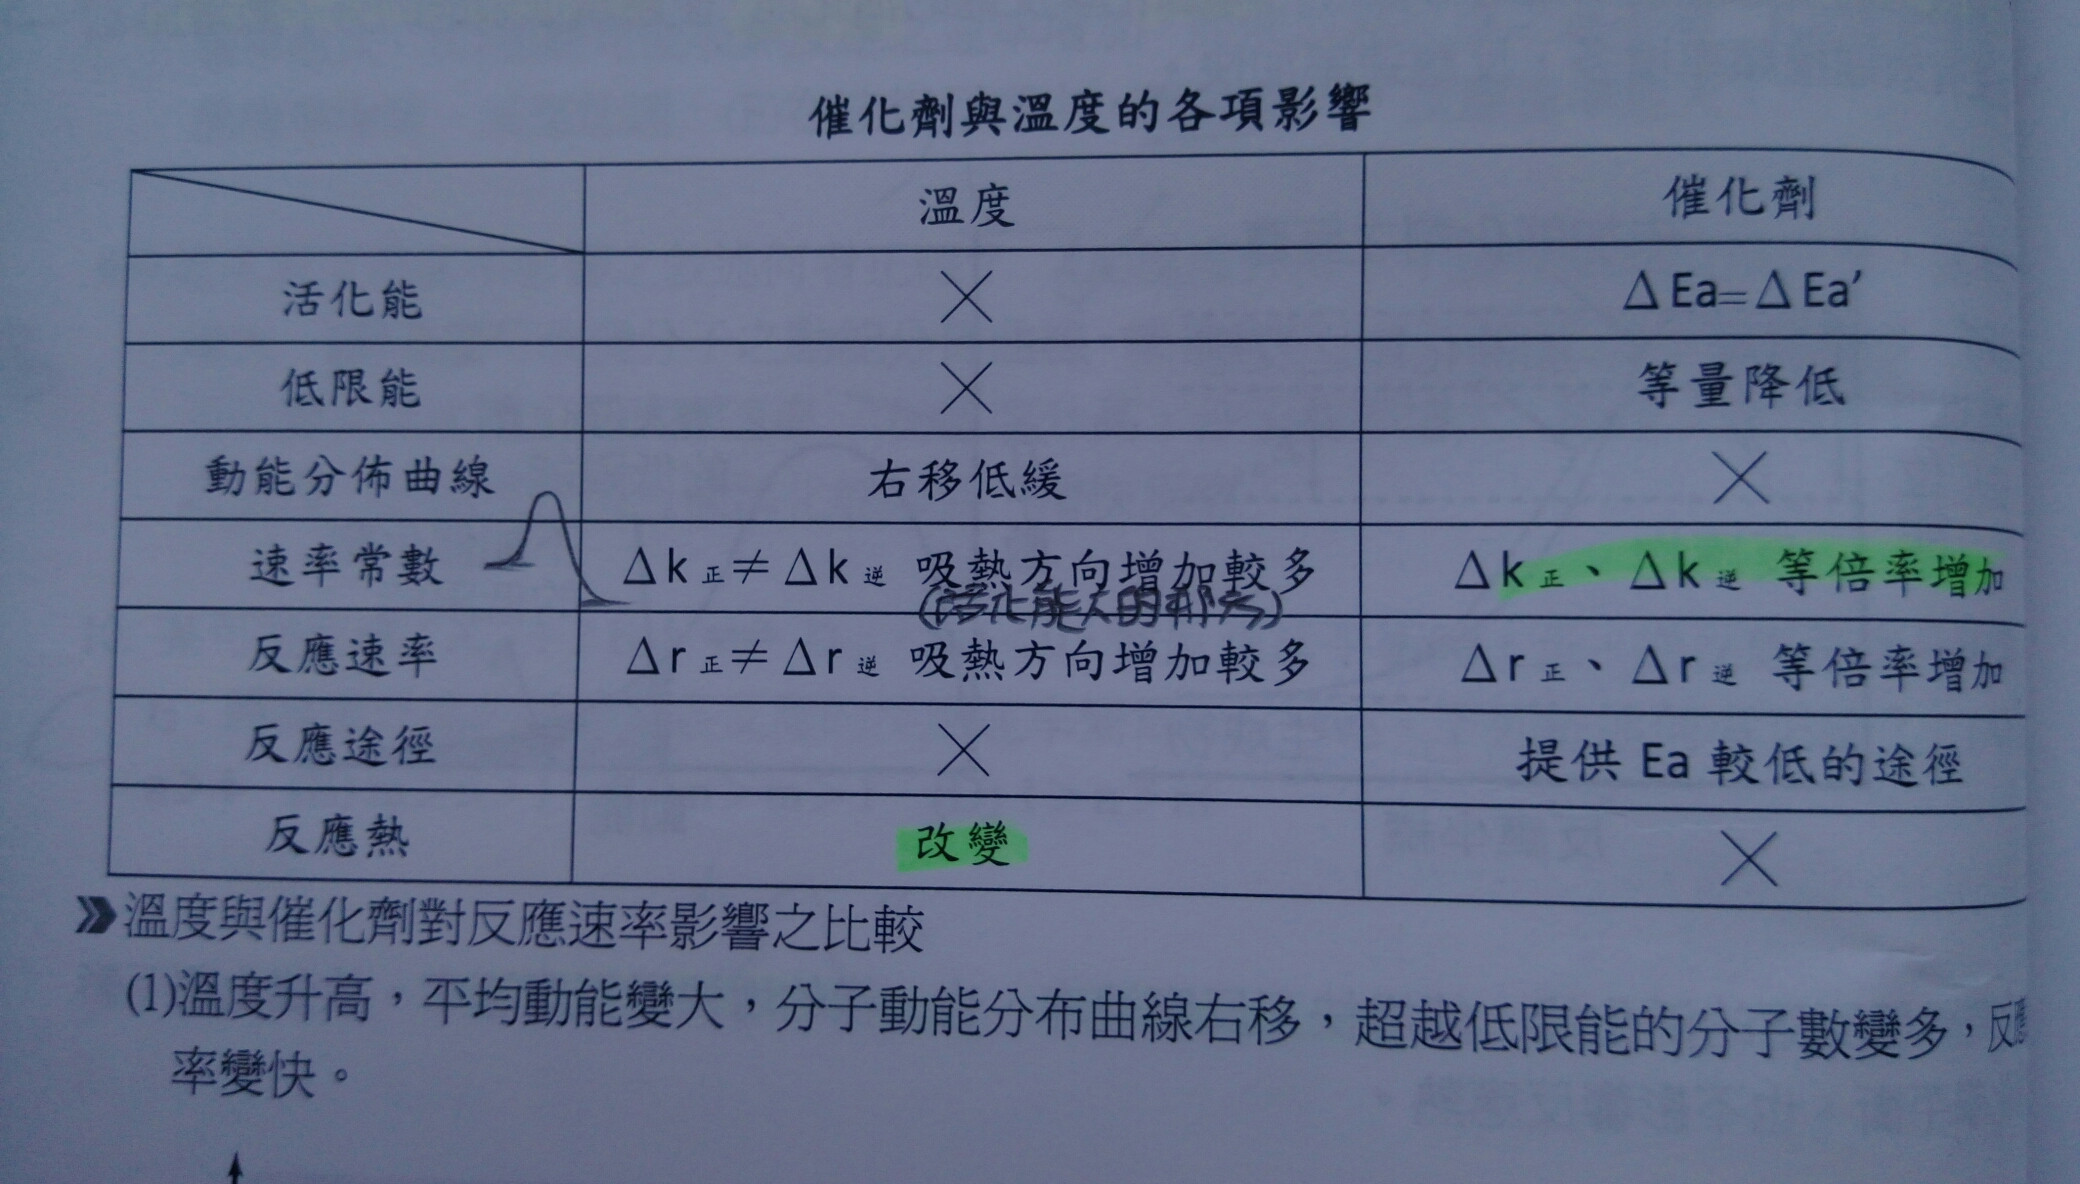 催化劑與溫度的各項影響
溫度 催化劑
活化能 ╳ ΔEa=ΔEa′
低限能 ╳ 等量降低
動能分佈曲線 右移低緩 ╳
速率常數 Δk正≠Δk逆 吸熱方向增加較多 Δk正、Δk逆 等倍率增加
(活化能大的那方)
反應速率 Δr正≠Δr逆 吸熱方向增加較多 Δr正、Δr逆 等倍率增加
反應途徑 ╳ 提供 Ea 較低的途徑
反應熱 改變 ╳
溫度與催化劑對反應速率影響之比較
(1)溫度升高，平均動能變大，分子動能分布曲線右移，超越低限能的分子數變多，反應
率變快。